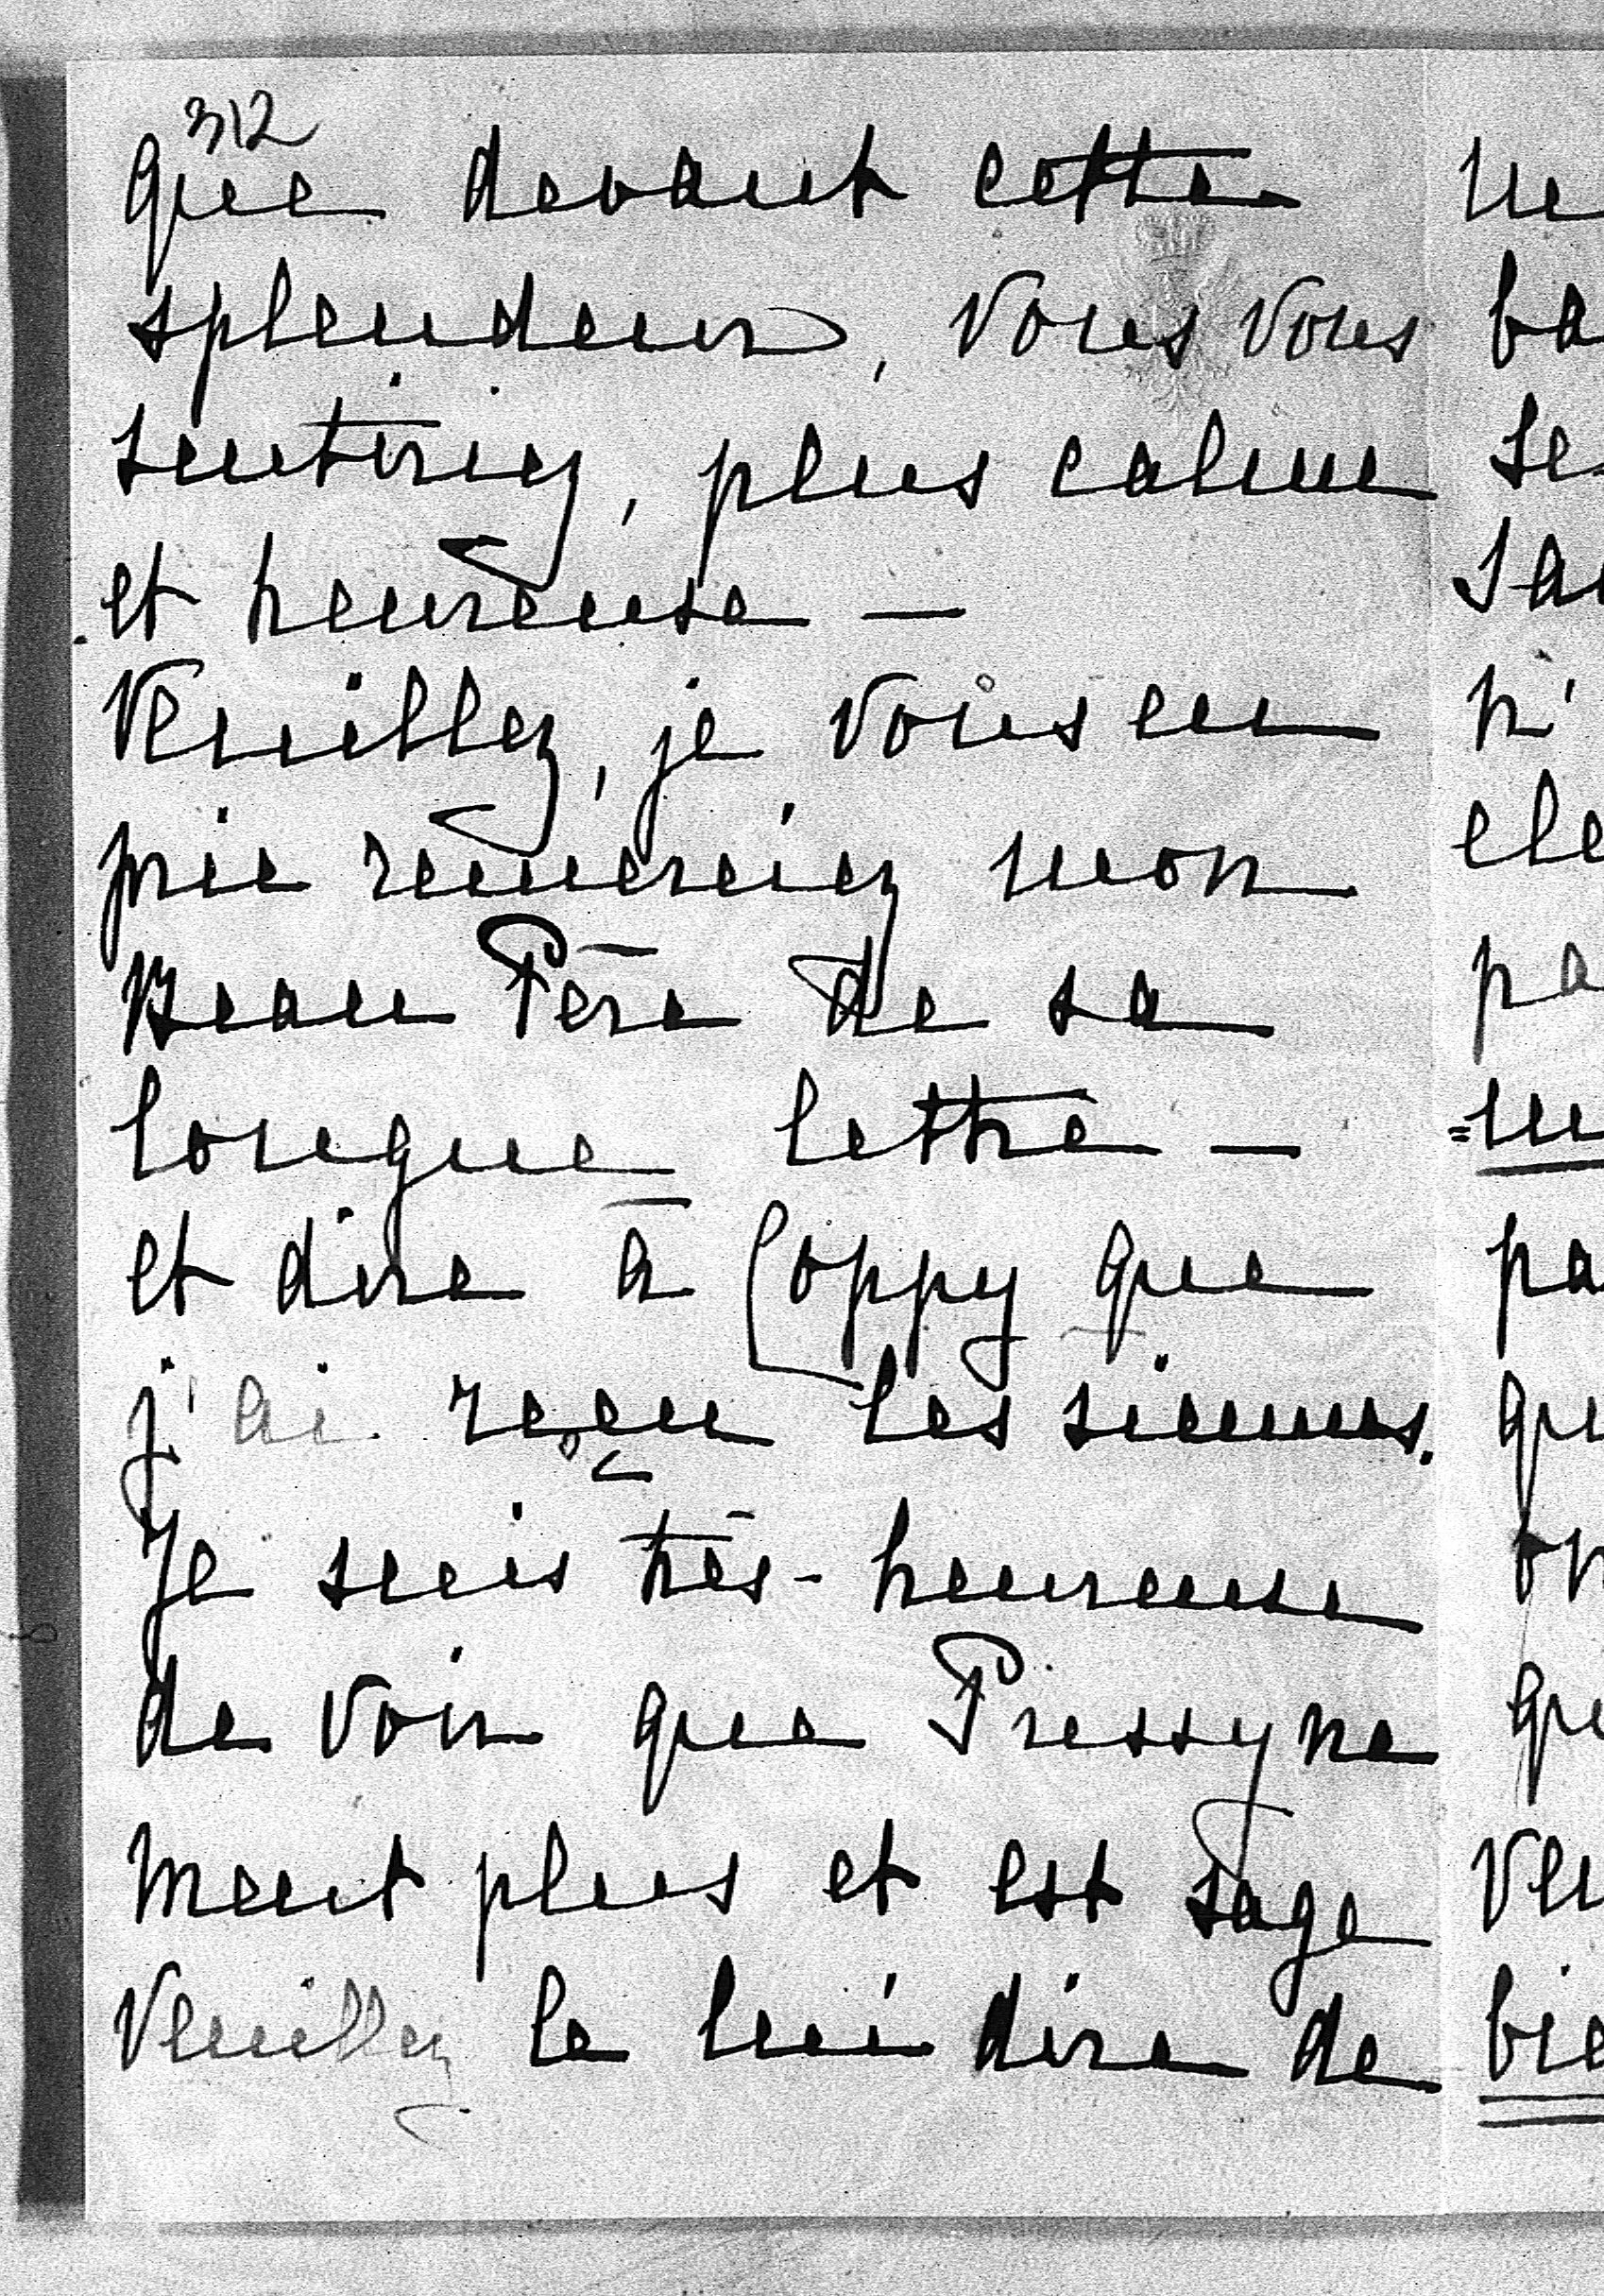 312
que devant cette
splendeur, vous vous
sentiriez, plus calme
et heureuse —
Veuillez, je vous en
prie remerciez mon
Beau Père de sa
longue lettre —
et dire a Coppy que
j'ai reçu les siennes.
Je suis très-heureuse
de voir que Pressy ne
ment plus et est sage
Veuillez le lui dire de